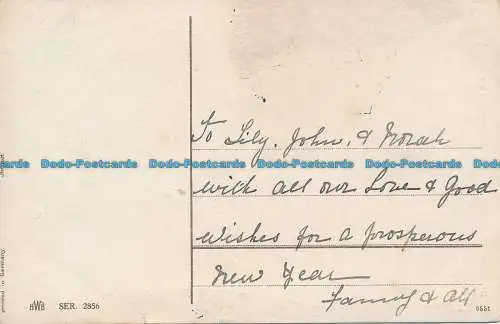 To Lily, John, & Norah
with all our Love & Good
wishes for a prosperous
New Year
Fanny & All
Dodo-Postcards Dodo-Postcards Dodo-Postcards Dodo-Postcards Dodo-Postcards
HWB SER. 2856
in Germany.